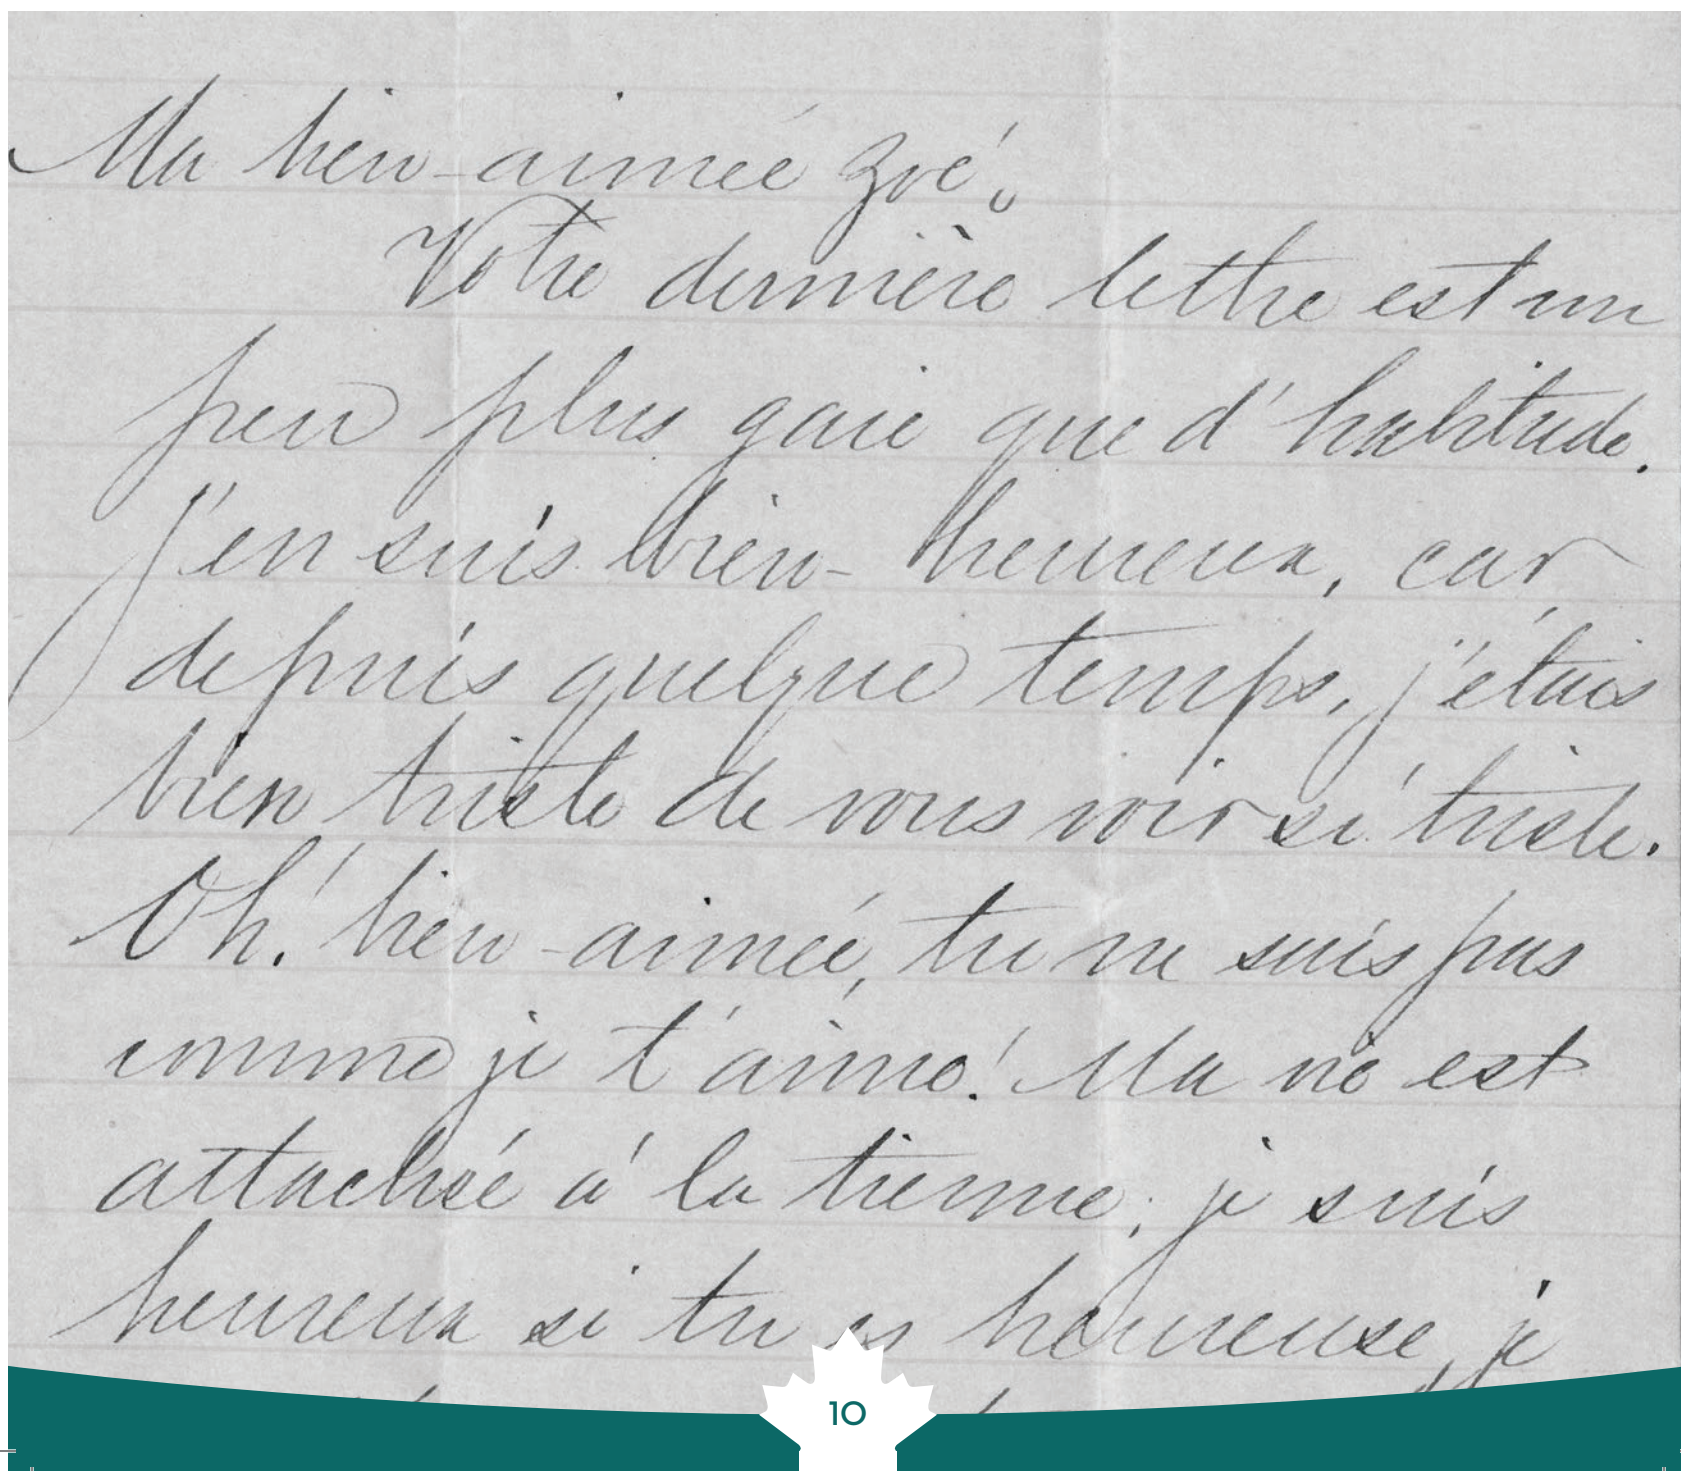 Ma bien-aimée Zoé,
Votre dernière lettre est un
peu plus gaie que d'habitude.
J'en suis bien-heureux, car
depuis quelque temps, j'étais
bien triste de vous voir si triste.
Oh! bien-aimée, tu ne sais pas
comme je t'aime! Ma vie est
attachée à la tienne; je suis
heureux si tu es heureuse, je
10